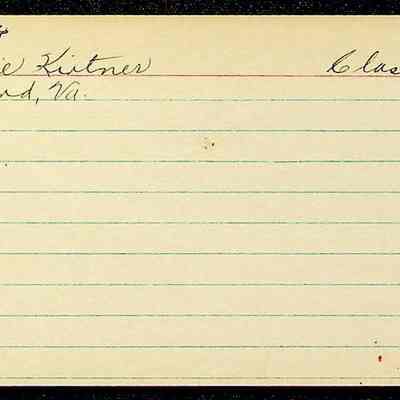 ie Kirtner Clas
nd, Va.